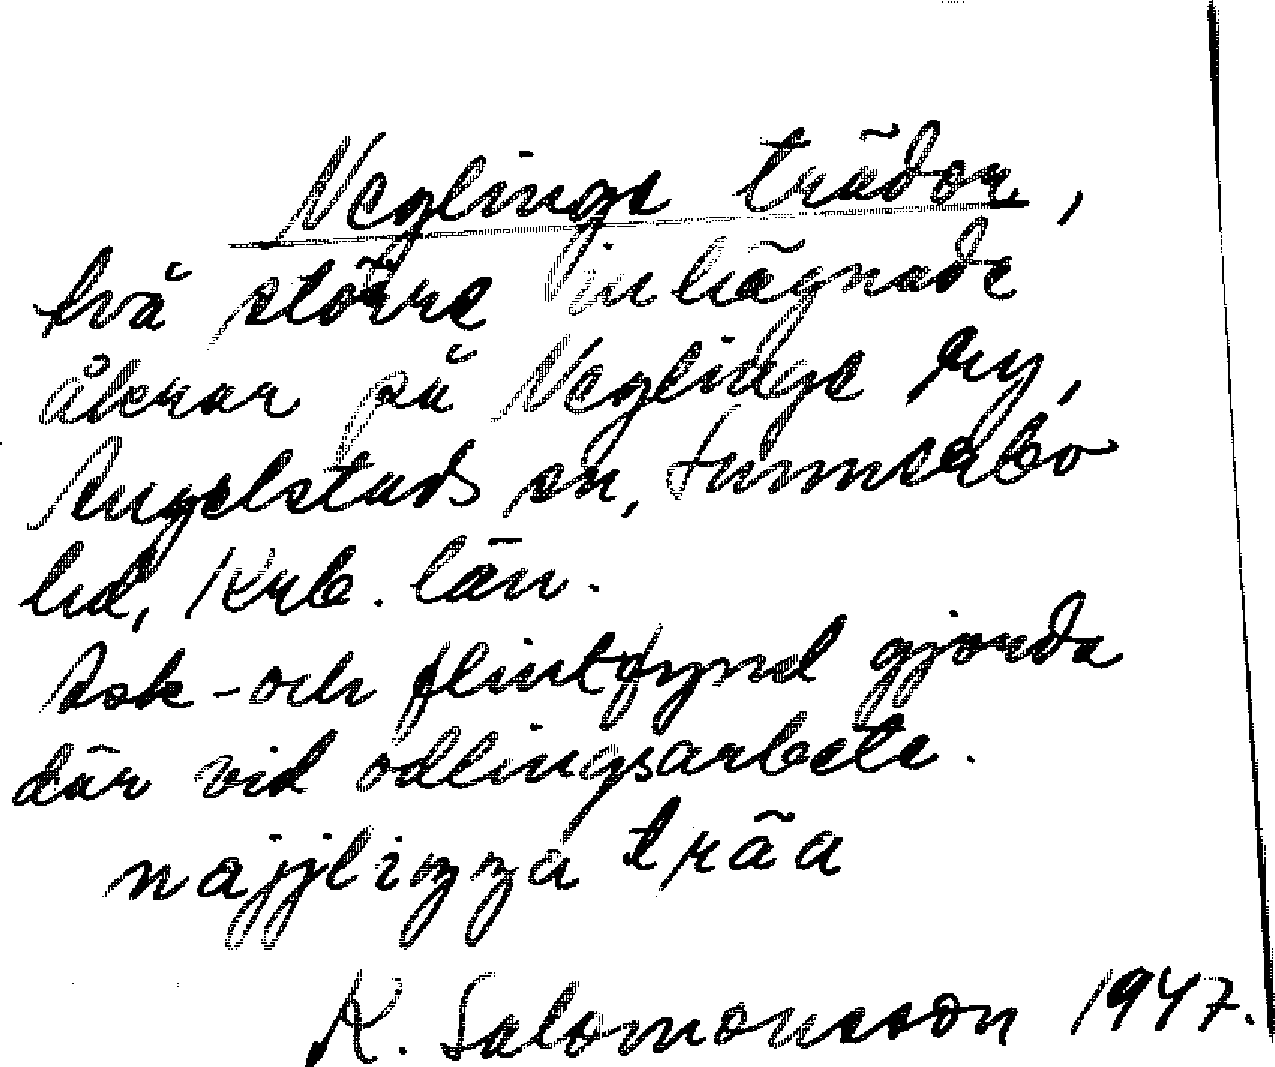 Neglinge trädor,
två större inhägnade
åkrar på Neglinge by,
Angelstads sn, Sunnerbo
hd, Krb. län.
Ask- och flintfynd gjorda
där vid odlingsarbete.
najjlizza träa
K. Salomonsson 1947.